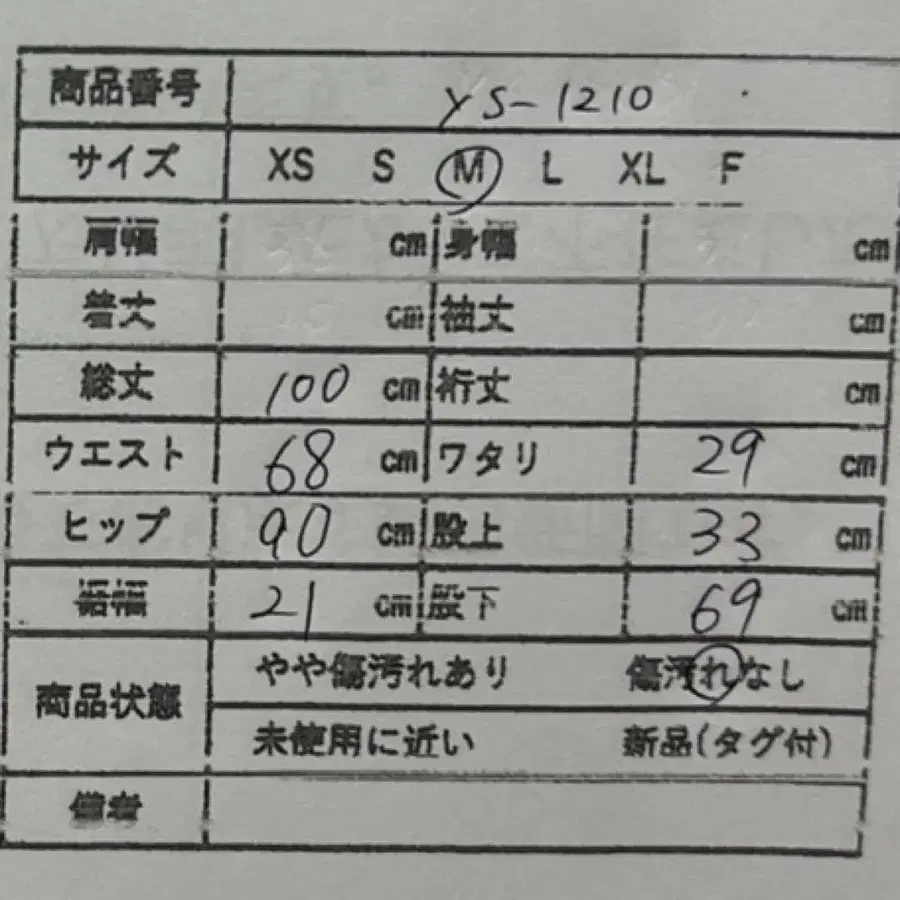 商品番号 YS-1210
サイズ XS S M L XL F
肩幅 cm 身幅 cm
着丈 cm 袖丈 cm
総丈 100 cm 裄丈 cm
ウエスト 68 cm ワタリ 29 cm
ヒップ 90 cm 股上 33 cm
裾幅 21 cm 股下 69 cm
商品状態 やや傷汚れあり 傷汚れなし
未使用に近い 新品(タグ付)
備考